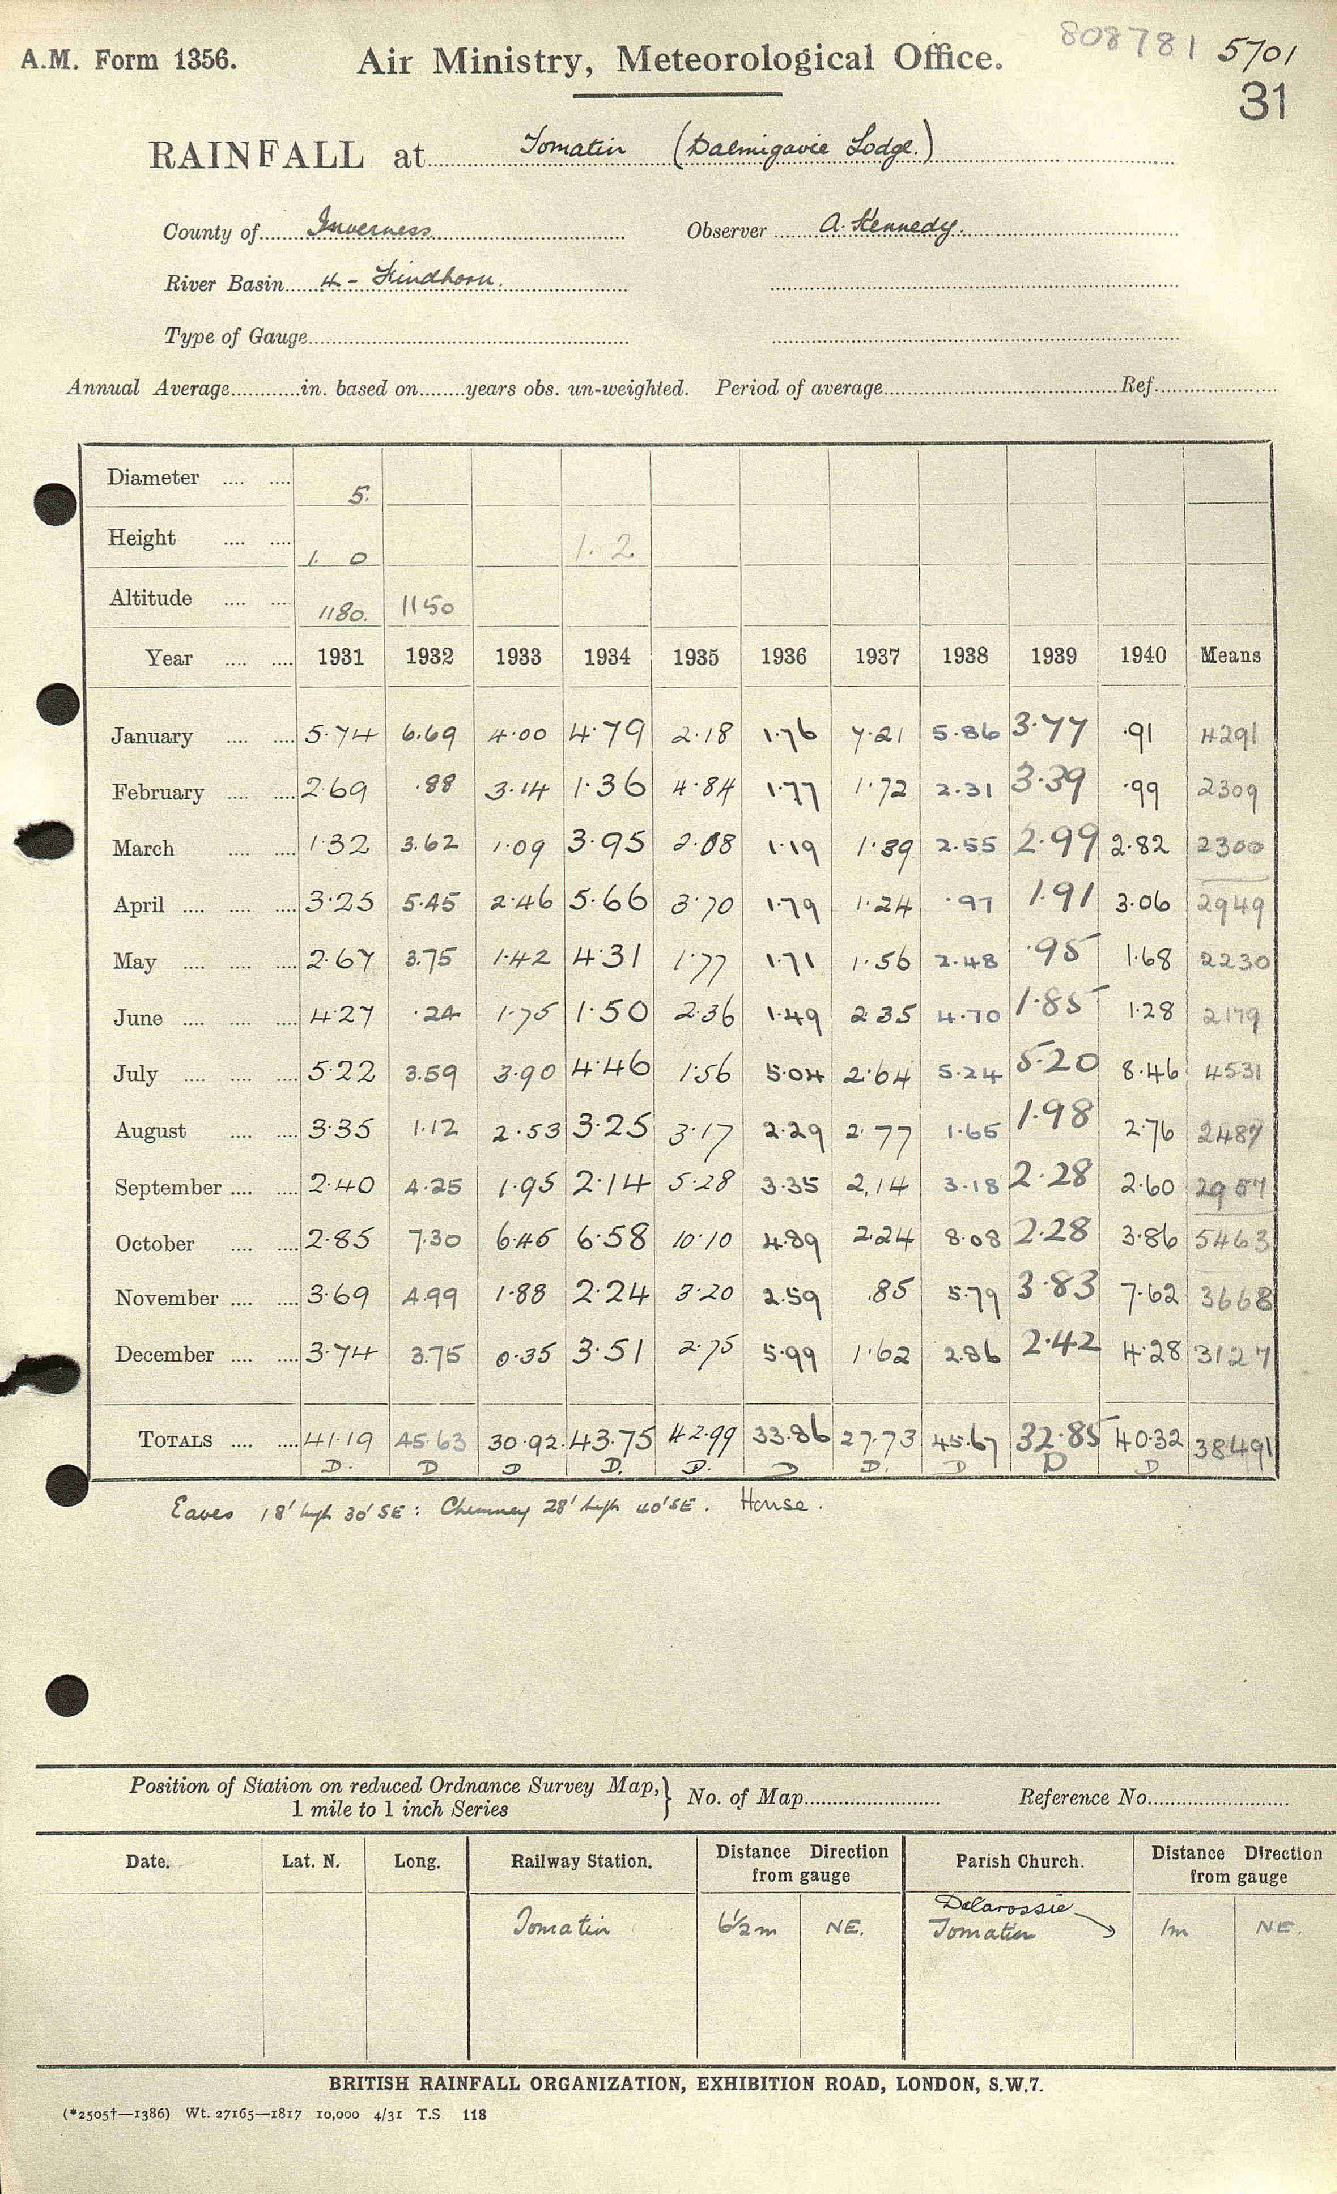 A.M. Form 1356. Air Ministry, Meteorological Office. 808781 5701
31
RAINFALL at Tomatin (Dalmigavie Lodge.)
County of Inverness Observer A. Kennedy.
River Basin 4 - Findhorn.
Type of Gauge
Annual Average in. based on years obs. un-weighted. Period of average Ref.
Diameter 5.
Height 1. 0 1. 2
Altitude 1180. 1150
Year 1931 1932 1933 1934 1935 1936 1937 1938 1939 1940 Means
January 5.74 6.69 4.00 4.79 2.18 1.76 7.21 5.86 3.77 .91 4291
February 2.69 .88 3.14 1.36 4.84 1.77 1.72 2.31 3.39 .99 2309
March 1.32 3.62 1.09 3.95 2.08 1.19 1.39 2.55 2.99 2.82 2300
April 3.25 5.45 2.46 5.66 3.70 1.79 1.24 .97 1.91 3.06 2949
May 2.67 3.75 1.42 4.31 1.77 1.71 1.56 2.48 .95 1.68 2230
June 4.27 .24 1.75 1.50 2.36 1.49 2.35 4.70 1.85 1.28 2179
July 5.22 3.59 3.90 4.46 1.56 5.04 2.64 5.24 5.20 8.46 4531
August 3.35 1.12 2.53 3.25 3.17 2.29 2.77 1.65 1.98 2.76 2487
September 2.40 4.25 1.95 2.14 5.28 3.35 2.14 3.18 2.28 2.60 2957
October 2.85 7.30 6.45 6.58 10.10 4.89 2.24 8.08 2.28 3.86 5463
November 3.69 4.99 1.88 2.24 3.20 2.59 .85 5.79 3.83 7.62 3668
December 3.74 3.75 0.35 3.51 2.75 5.99 1.62 2.86 2.42 4.28 3127
TOTALS 41.19 45.63 30.92 43.75 42.99 33.86 27.73 45.67 32.85 40.32 38491
D. D D D. D. D D. D D D
Eaves 18' high 30' SE : Chimney 28' high 40' SE. House.
Position of Station on reduced Ordnance Survey Map,
1 mile to 1 inch Series } No. of Map Reference No.
Date. Lat. N. Long. Railway Station. Distance Direction from gauge Parish Church. Distance Direction from gauge
Dalarossie
Tomatin 6½m NE. Tomatin 1m NE.
BRITISH RAINFALL ORGANIZATION, EXHIBITION ROAD, LONDON, S.W.7.
(*2505†—1386) Wt. 27165—1817 10,000 4/31 T.S 118